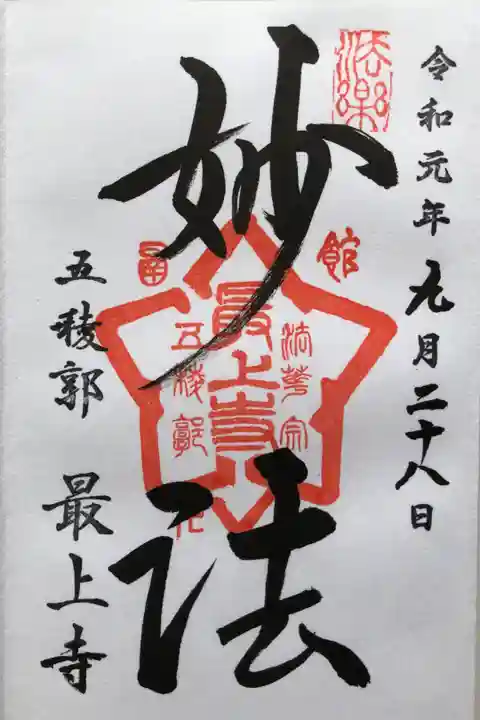 令和元年九月二十八日
法樂
妙法
館
法華宗
最上寺
五稜郭
五稜郭 最上寺